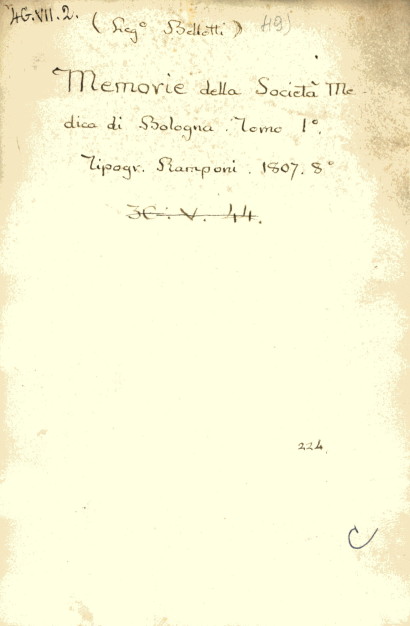 4G.VII.2. (Leg° Bellotti) 49)
Memorie della Società Me-
dica di Bologna. Tomo 1°.
Tipogr. Ramponi. 1807. 8°
3C. V. 44.
224.
C